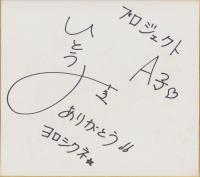 プロジェクト
A子♡
いとう
ありがとう!!
ヨロシクネ★